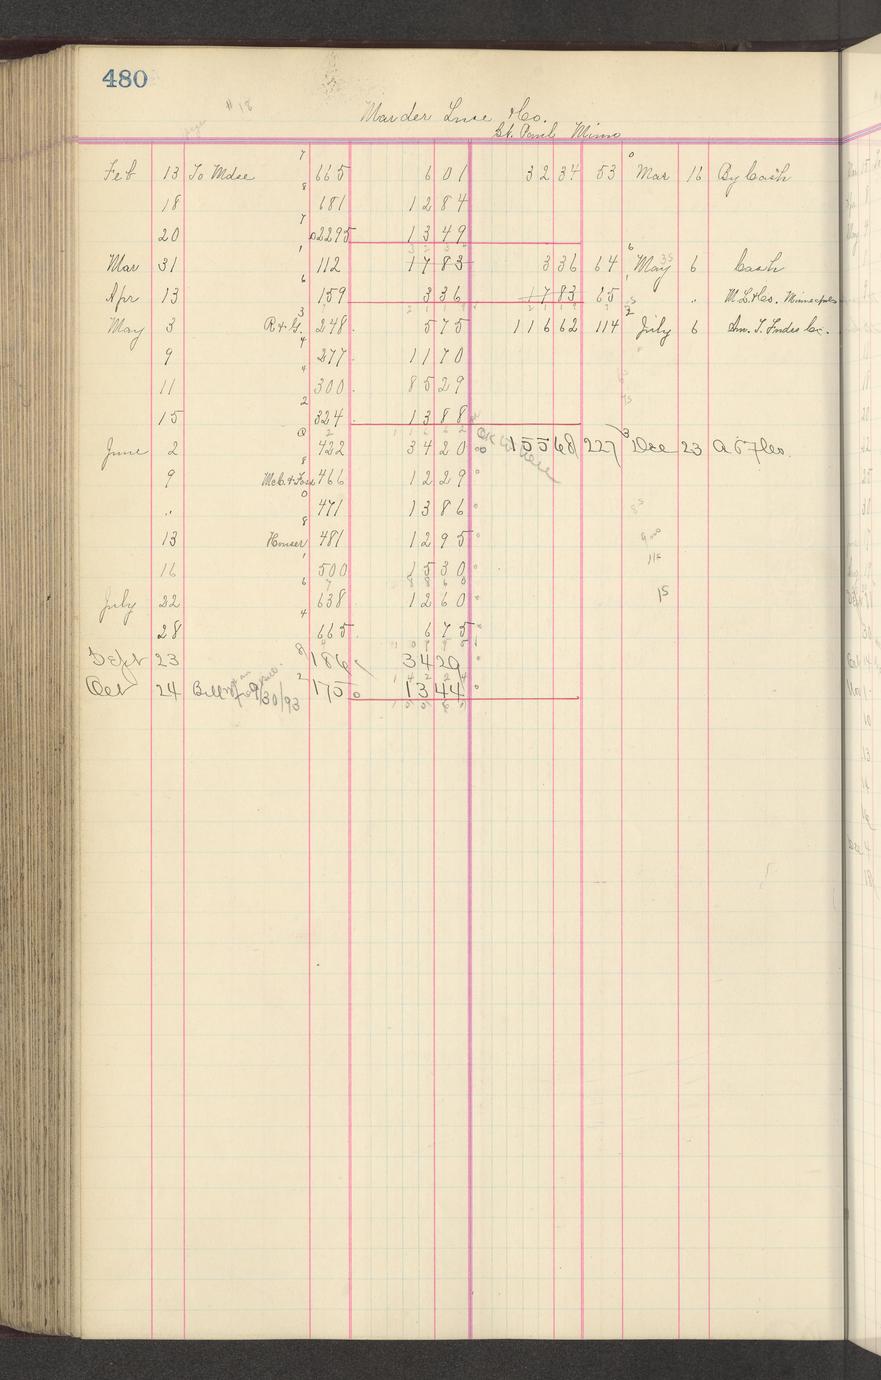 480
Marder Luse & Co.
St. Paul Minn
Feb 13 To Mdse 7 665 6 01 32 34 53 0 Mar 16 By Cash
18 8 181 12 84
20 7 2295 13 49
Mar 31 1 112 17 83 3 36 64 6 May 6 Cash
Apr 13 6 159 3 36 17 83 65 1 " M. L. & Co. Minneapolis
May 3 R & G. 3 248 5 75 116 62 114 2 July 6 Am. T. Fndrs Co.
9 4 277 11 70
11 4 300 85 29
15 2 324 13 88
June 2 0 422 34 20 155 68 227 3 Dec 23 A 5 7 Co.
9 8 466 12 29
" 0 471 13 86
13 Houser 8 481 12 95
16 1 500 15 30
July 22 6 638 12 60
28 4 665 6 75
Sept 23 8 186 34 29
Oct 24 Bill of 9/30/93 2 175 13 44